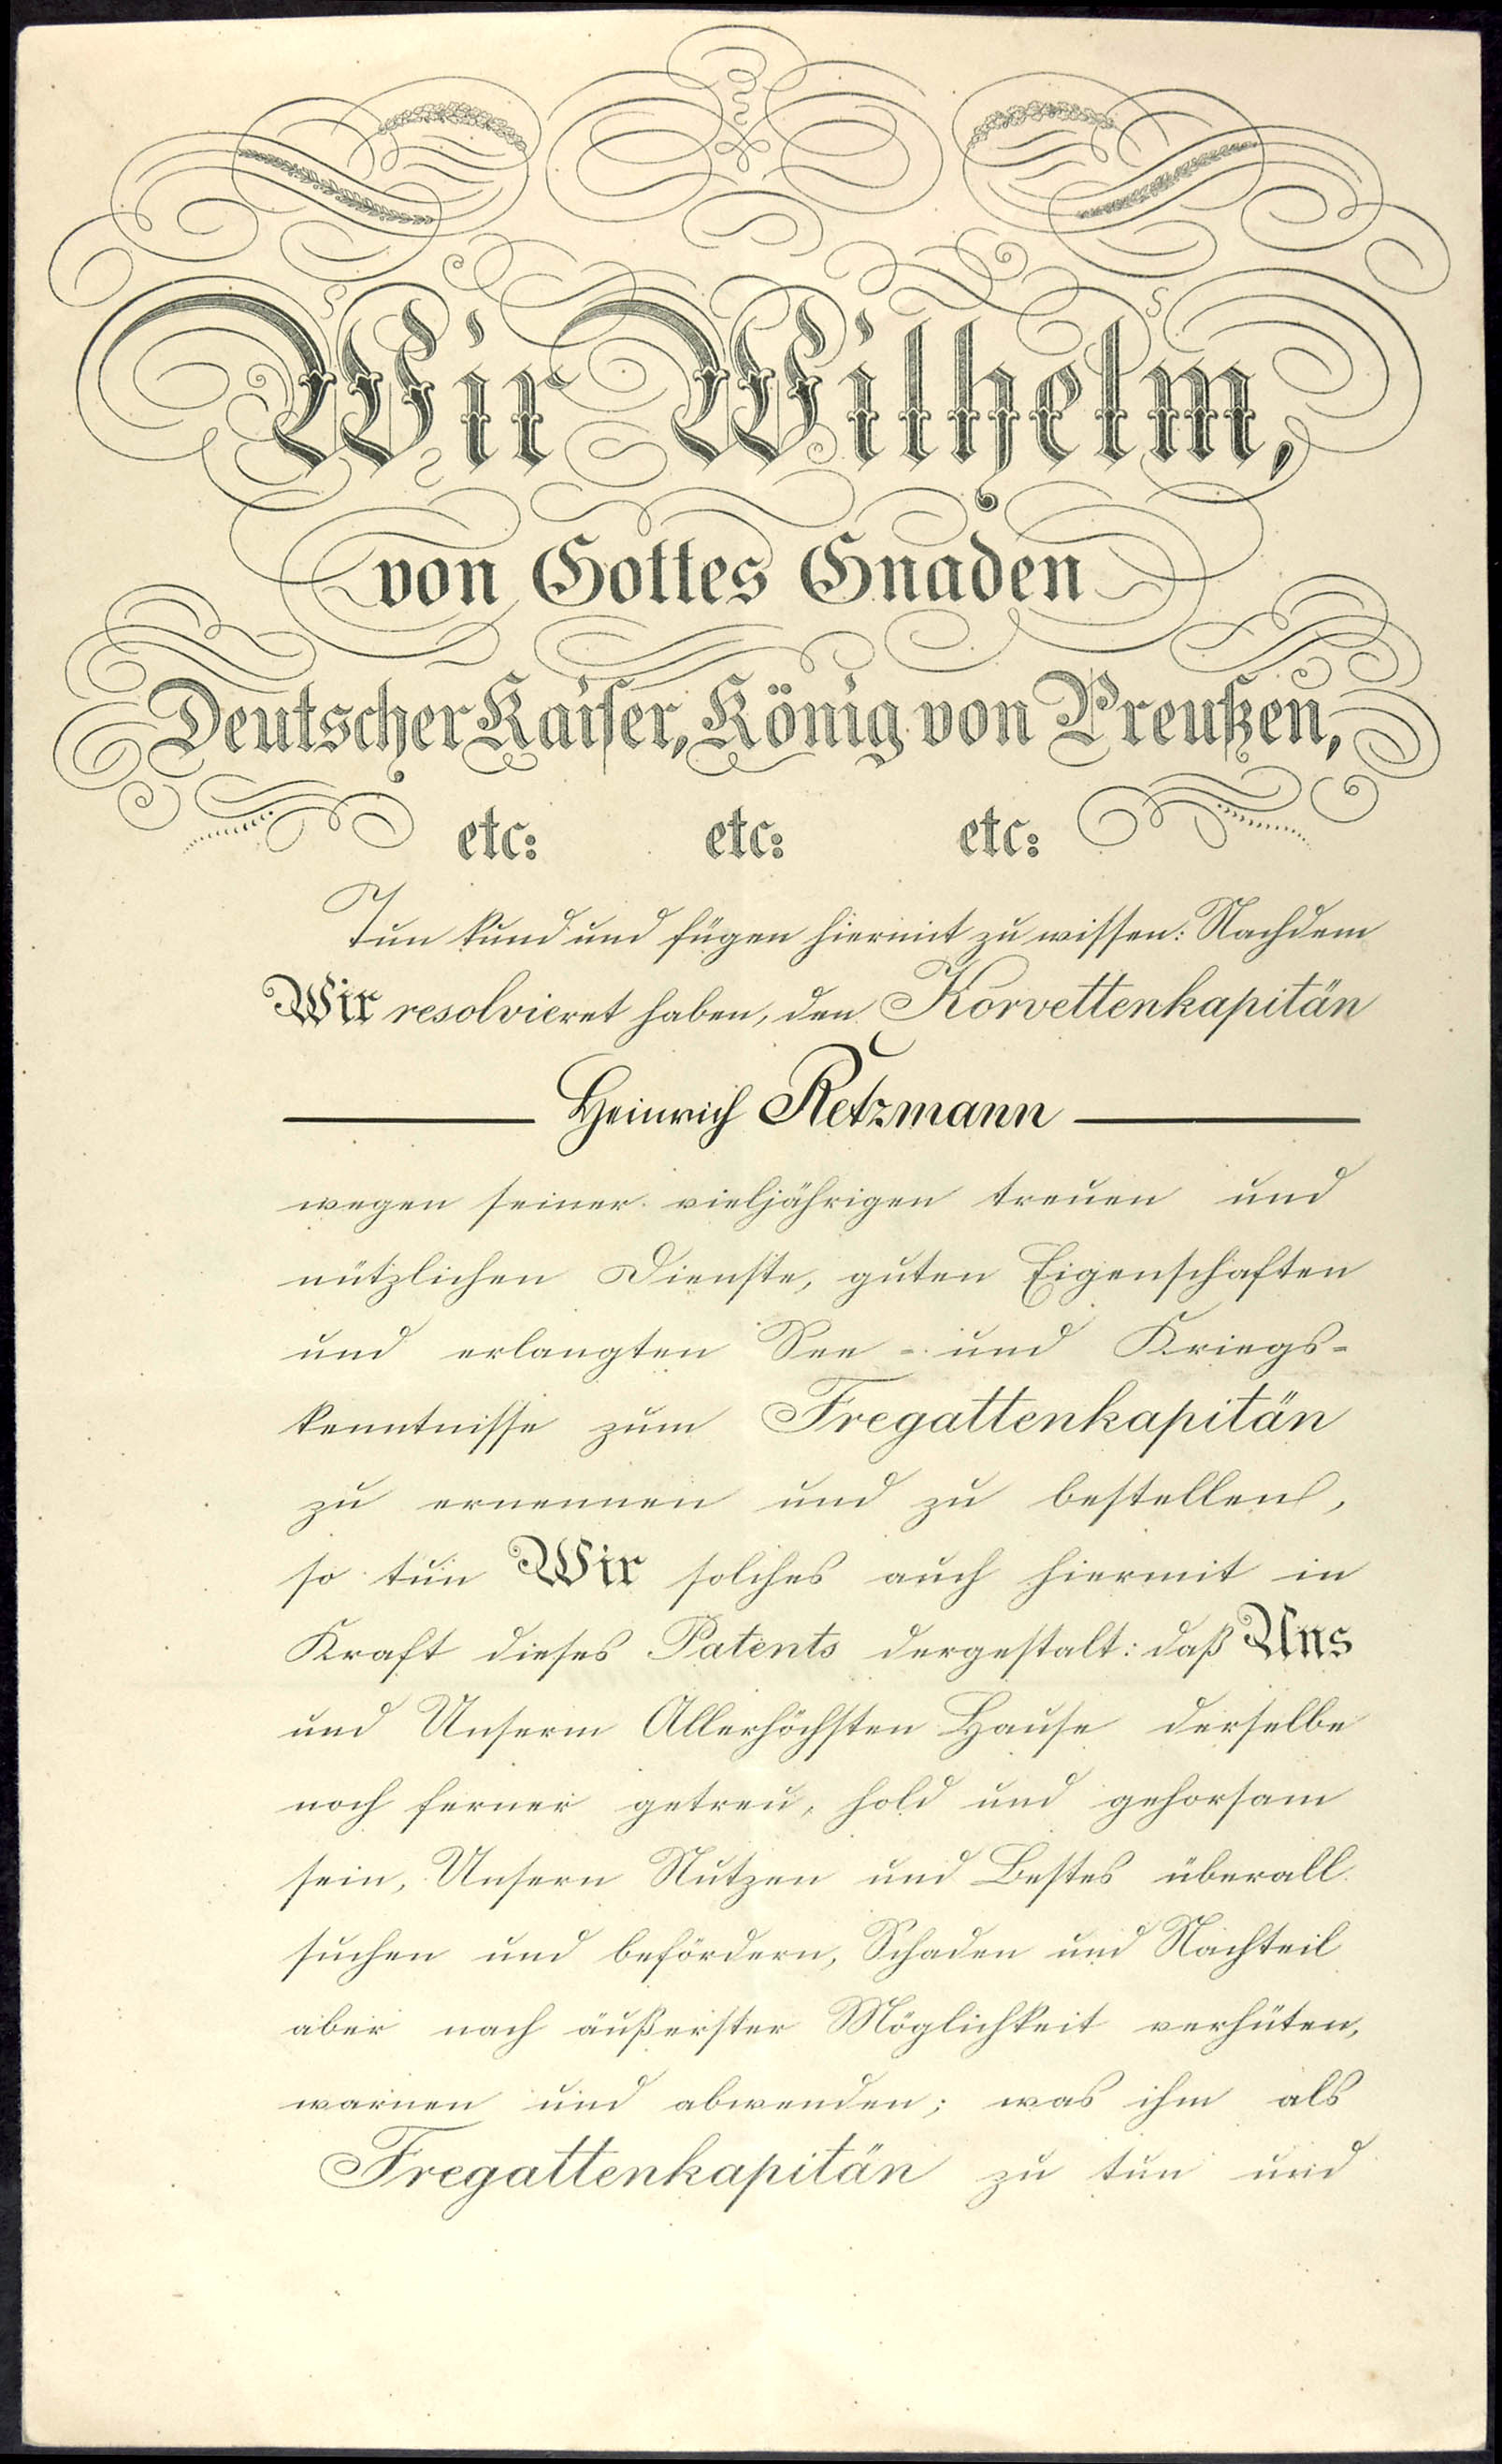 Wir Wilhelm,
von Gottes Gnaden
Deutscher Kaiser, König von Preußen,
etc: etc: etc:
Tun kund und fügen hiermit zu wissen: Nachdem
Wir resolvieret haben, den Korvettenkapitän
Heinrich Retzmann
wegen seiner vieljährigen treuen und
nützlichen Dienste, guten Eigenschaften
und erlangten See- und Kriegs-
kenntnisse zum Fregattenkapitän
zu ernennen und zu bestellen,
so tun Wir solches auch hiermit in
Kraft dieses Patents dergestalt: daß Uns
und Unserm Allerhöchsten Hause derselbe
noch ferner getreu, hold und gehorsam
sein, Unsern Nutzen und Bestes überall
suchen und befördern, Schaden und Nachteil
aber nach äußerster Möglichkeit verhüten,
warnen und abwenden; was ihm als
Fregattenkapitän zu tun und